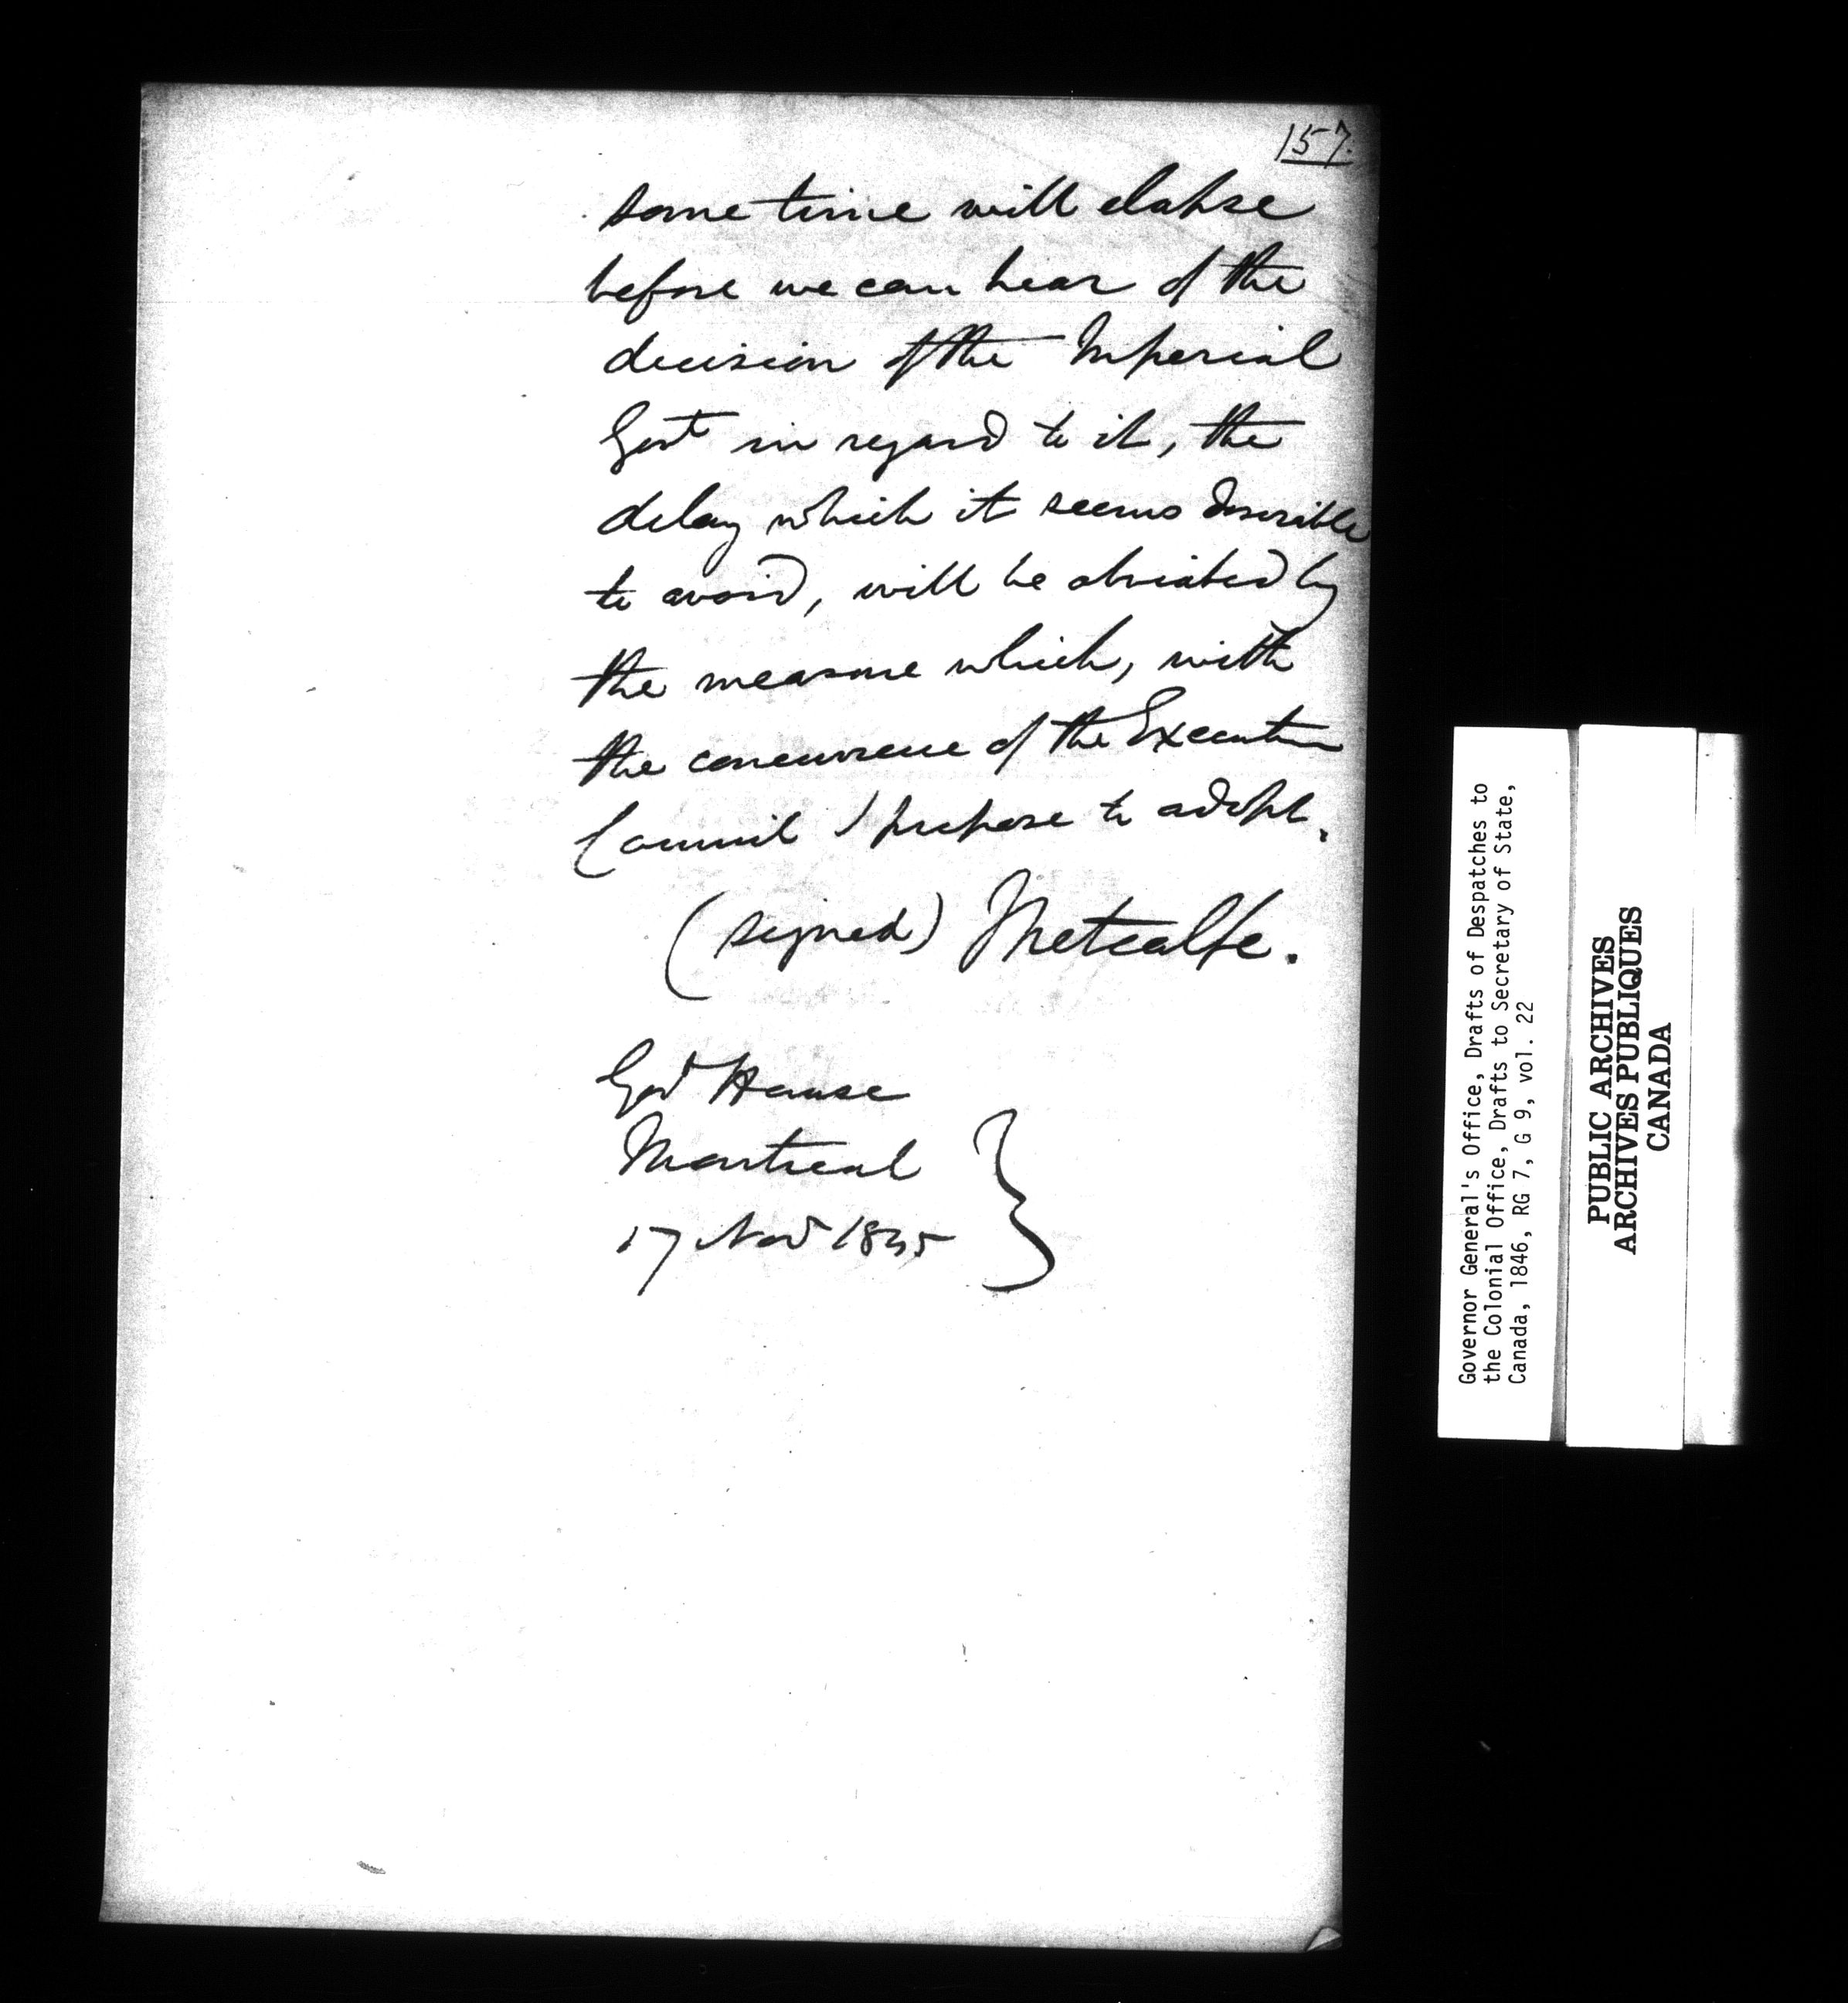 157.
some time will elapse
before we can hear of the
decision of the Imperial
Govt in regard to it, the
delay which it seems desirible
to avoid, will be obviated by
the measure which, with
the concurrence of the Executive
Council I propose to adopt.
(signed) Metcalfe.
Govt House
Montreal
17 Novr 1845
Governor General's Office, Drafts of Despatches to
the Colonial Office, Drafts to Secretary of State,
Canada, 1846, RG 7, G 9, vol. 22
PUBLIC ARCHIVES
ARCHIVES PUBLIQUES
CANADA